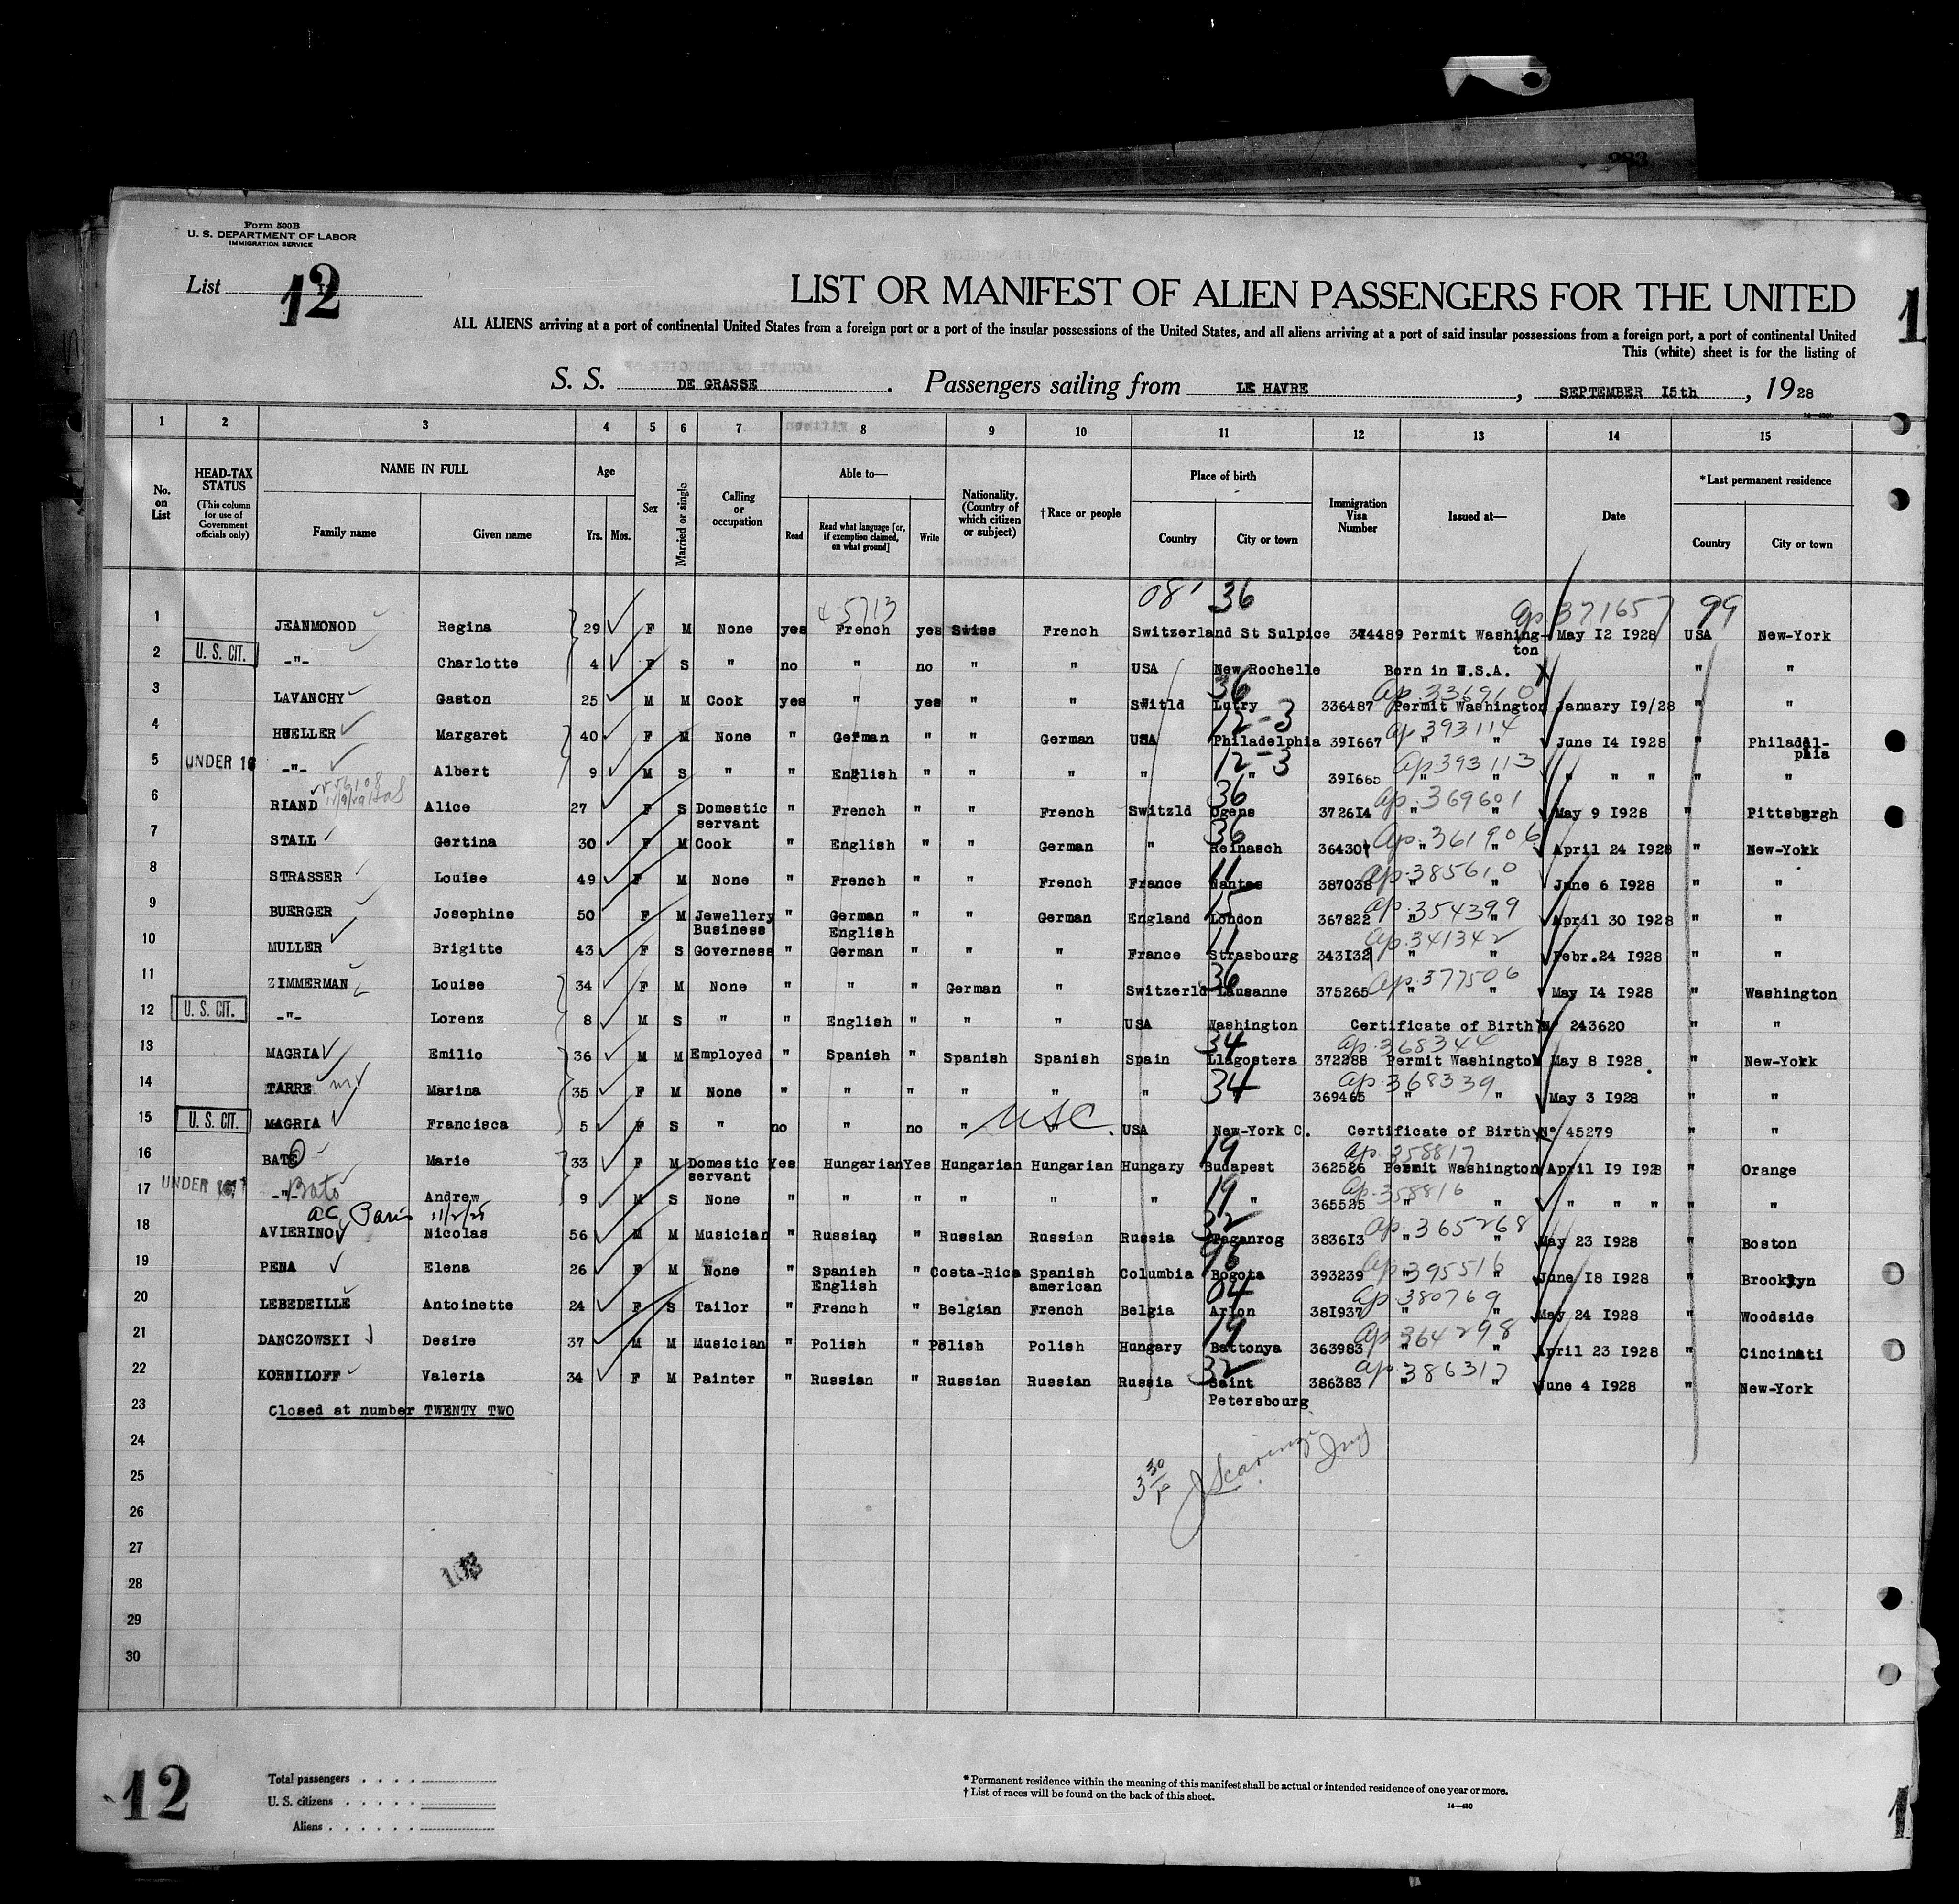 283
Form 500B
U. S. DEPARTMENT OF LABOR
IMMIGRATION SERVICE
List 12
LIST OR MANIFEST OF ALIEN PASSENGERS FOR THE UNITED
1
ALL ALIENS arriving at a port of continental United States from a foreign port or a port of the insular possessions of the United States, and all aliens arriving at a port of said insular possessions from a foreign port, a port of continental United
This (white) sheet is for the listing of
S. S. DE GRASSE. Passengers sailing from LE HAVRE, SEPTEMBER I5th, 1928
1 2 3 4 5 6 7 8 9 10 11 12 13 14 15
No. on List
HEAD-TAX STATUS (This column for use of Government officials only)
NAME IN FULL Family name Given name
Age Yrs. Mos.
Sex
Married or single
Calling or occupation
Able to— Read Read what language [or, if exemption claimed, on what ground] Write
Nationality. (Country of which citizen or subject)
†Race or people
Place of birth Country City or town
Immigration Visa Number
Issued at—
Date
*Last permanent residence Country City or town
4-5713 08' 36 ap 371657 99
1 JEANMONOD Regina 29 F M None yes French yes Swiss French Switzerland St Sulpice 374489 Permit Washing-ton May I2 I928 USA New-York
2 U. S. CIT. -"- Charlotte 4 F S " no " no " " USA New Rochelle Born in U.S.A. " "
36 ap. 336960
3 LAVANCHY Gaston 25 M M Cook yes " yes " " Switld Lutry 336487 Permit Washington January I9/28 " "
12-3 ap 393114
4 HUELLER Margaret 40 F M None " German " " German USA Philadelphia 39I667 " " June I4 I928 " Philadel-phia
12-3 ap 393113
5 UNDER 16 -"- Albert 9 M S " " English " " " " " 39I665 " " " " " " "
36 ap. 369601
6 RIAND Alice 27 F S Domestic servant " French " " French Switzld Ogens 3726I4 " " May 9 I928 " Pittsburgh
36 ap. 361906
7 STALL Gertina 30 F M Cook " English " " German " Reinasch 364307 " " April 24 I928 " New-York
11 ap. 385610
8 STRASSER Louise 49 F M None " French " " French France Nantes 387038 " " June 6 I928 " "
15 ap. 354399
9 BUERGER Josephine 50 F M Jewellery Business " German English " " German England London 367822 " " April 30 I928 " "
11 ap. 341342
10 MULLER Brigitte 43 F S Governess " German " " " France Strasbourg 343I32 " " Febr.24 I928 " "
36 ap. 377506
11 ZIMMERMAN Louise 34 F M None " " " German " Switzerld Lausanne 375265 " " May I4 I928 " Washington
12 U. S. CIT. -"- Lorenz 8 M S " " English " " " USA Washington Certificate of Birth N° 243620 " "
34 ap. 368344
13 MAGRIA Emilio 36 M M Employed " Spanish " Spanish Spanish Spain Llagostera 372288 Permit Washington May 8 I928 " New-York
34 ap. 368339
14 TARRE Marina 35 F M None " " " " " " 369465 " " May 3 I928 " "
15 U. S. CIT. MAGRIA Francisca 5 F S " no " no " USC " USA New-York C. Certificate of Birth N° 45279 " "
19 ap. 358817
16 BATE Marie 33 F M Domestic servant Yes Hungarian Yes Hungarian Hungarian Hungary Budapest 362526 Permit Washington April I9 I928 " Orange
19 ap. 358816
17 UNDER 16 -"- Bato Andrew 9 M S None " " " " " " " 365525 " " " " " " "
ac Paris 11/2/28
32 ap. 365268
18 AVIERINO Nicolas 56 M M Musician " Russian " Russian Russian Russia Taganrog 3836I3 " " May 23 I928 " Boston
ap 395516
19 PENA Elena 26 F M None " Spanish English " Costa-Rica Spanish american Columbia Bogota 393239 " " June I8 I928 " Brooklyn
04 ap. 380769
20 LEBEDEILLE Antoinette 24 F S Tailor " French " Belgian French Belgia Arlon 38I937 " " May 24 I928 " Woodside
19 ap. 364298
21 DANCZOWSKI Desire 37 M M Musician " Polish " Polish Polish Hungary Battonya 363983 " " April 23 I928 " Cincinati
32 ap. 386317
22 KORNILOFF Valeria 34 F M Painter " Russian " Russian Russian Russia Saint Petersbourg 386383 " " June 4 I928 " New-York
23 Closed at number TWENTY TWO
24
25
26
27
28
29
30
103
12
Total passengers
U. S. citizens
Aliens
* Permanent residence within the meaning of this manifest shall be actual or intended residence of one year or more.
† List of races will be found on the back of this sheet.
14—430
1